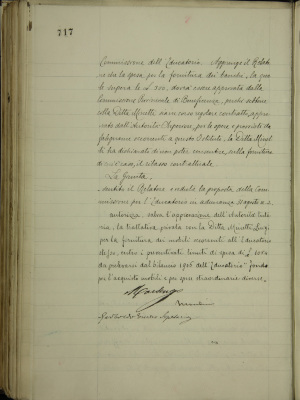 717
Commissione dell'Educatorio. Aggiunge il Relato
re che la spesa per la fornitura dei banchi, la qua
le supera le L. 500, dovrà essere approvata dalla
Commissione Provinciale di Beneficenza, perché sebbene
colla Ditta Minetti siavi in corso regolare contratto, appro
vato dall'Autorità Superiore, per le opere e provviste da
falegname occorrenti a questo Istituto, la Ditta Minet
ti ha dichiarato di non poter concedere, sulla fornitura
di cui è caso, il ribasso contrattuale.
La Giunta
sentito il Relatore e veduta la proposta della Com
missione per l'Educatorio in adunanza
autorizza, salva l'approvazione dell'Autorità tuto
ria, la trattativa privata colla Ditta Minetti Luigi
per la fornitura dei mobili occorrenti all'Educatorio
stesso, entro i preventivati limiti di spesa di L.
da prelevarsi dal bilancio 1916 dell'Educatorio fondo
per l'acquisto mobili e per spese straordinarie diverse.